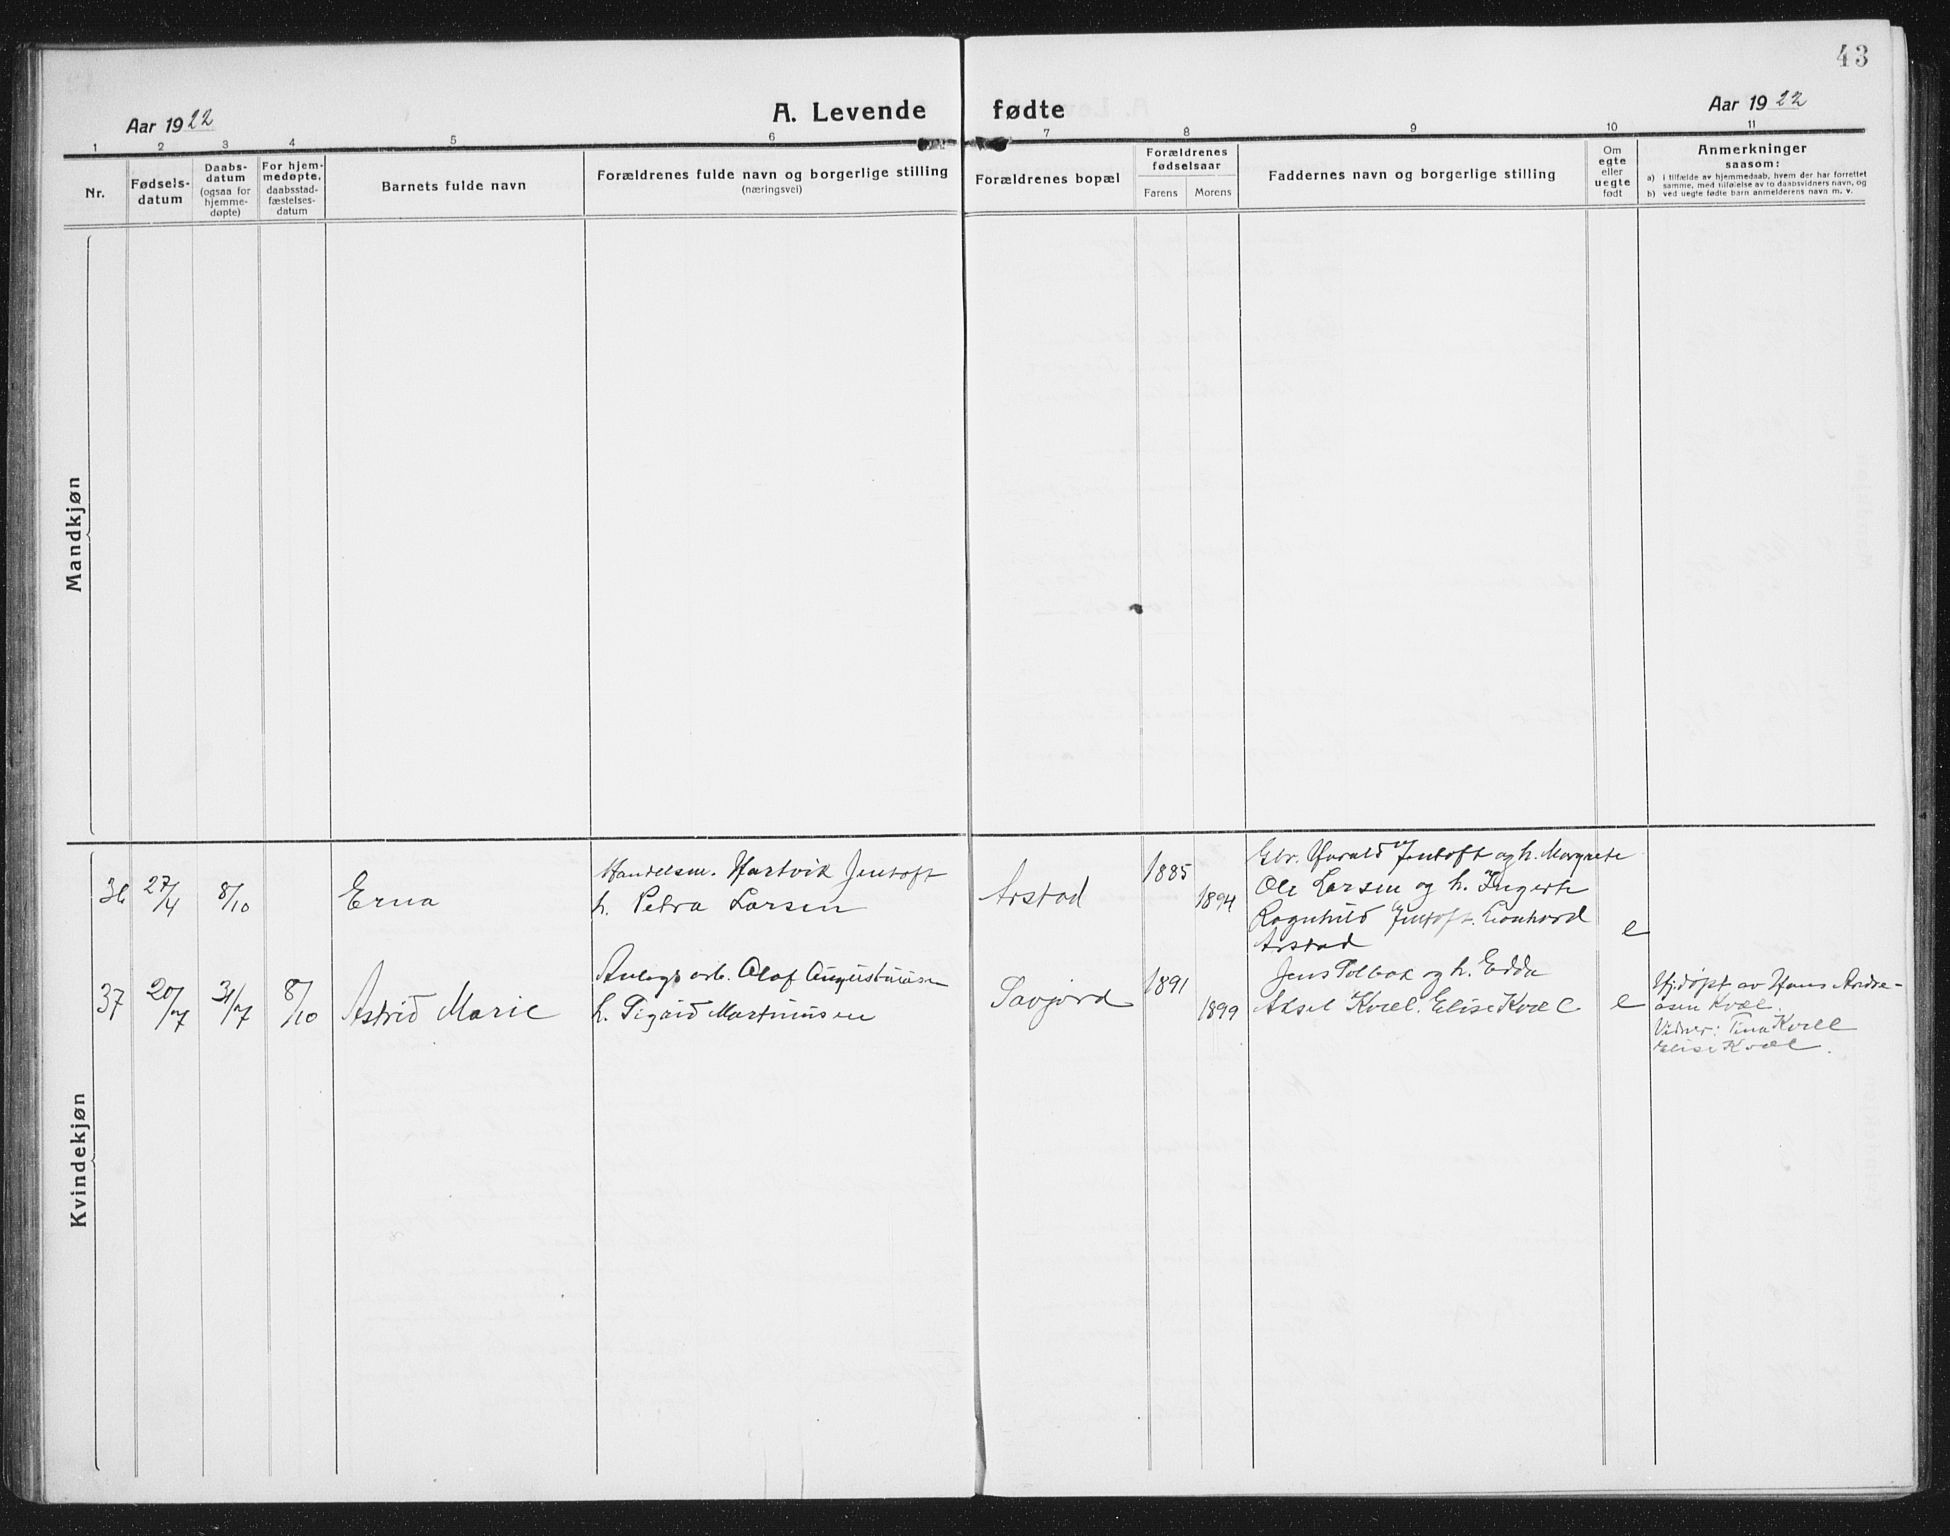 43
Aar 1922
A. Levende fødte
Aar 1922
1 2 3 4 5 6 7 8 9 10 11
Nr.
Fødsels-
datum
Daabs-
datum
(ogsaa for
hjemme-
døpte)
For hjem-
medøpte,
daabsstad-
fæstelses-
datum
Barnets fulde navn
Forældrenes fulde navn og borgerlige stilling
(næringsvei)
Forældrenes bopæl
Forældrenes
fødselsaar
Farens Morens
Faddernes navn og borgerlige stilling
Om
egte
eller
uegte
født
Anmerkninger
saasom:
a) i tilfælde av hjemmedaab, hvem der har forrettet
samme, med tilføielse av to daabsvidners navn, og
b) ved uegte fødte barn anmelderens navn m. v.
Mandkjøn
Kvindekjøn
36 27/4 8/10
Erna
Handelsm. Hartvik Jentoft
h. Petra Larsen
Arstad
1885
1894
Gbr. Harald Jentoft og h. Margrete
Ole Larsen og h.
Ragnhild Jentoft. Leonhard
Arstad
e
37 20/7 31/7 8/10
Astrid Marie
Anlegs arb. Olaf Augustinusen
h. Sigrid Martinusen
Savjord
1891
1899
Jens Solbak og h. Edda
Aksel Kvæl. Elise Kvæl
e
Hj.døpt av Hans Andre-
asen Kvæl.
Vidner: Tina Kvæl
Elise Kvæl.